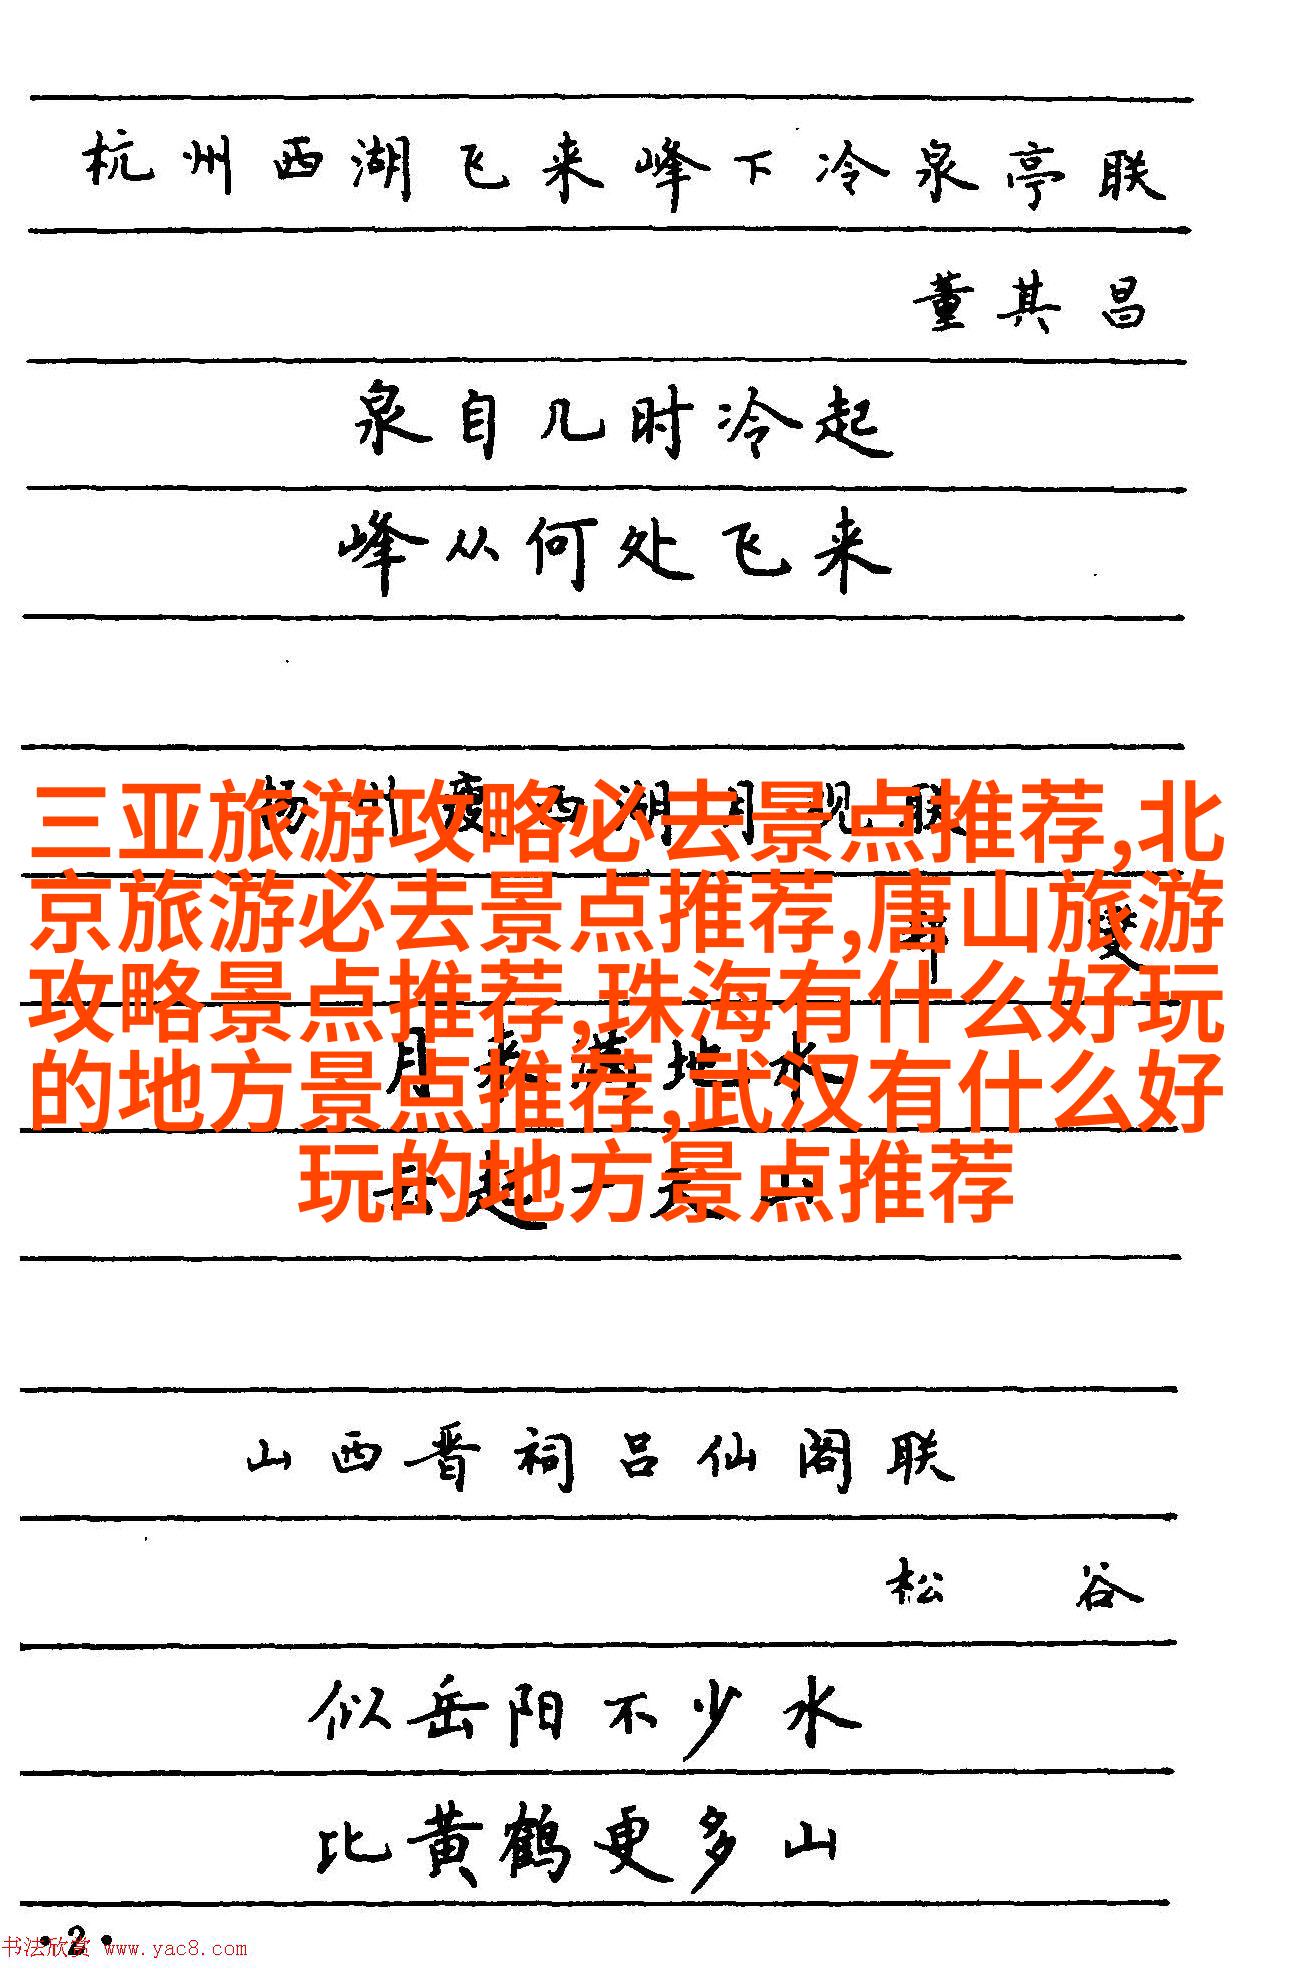 杭州西湖飞来峰下冷泉亭联
董其昌
泉自几时冷起
峰从何处飞来
扬州瘦西湖月观联
三亚旅游攻略必去景点推荐,北
京旅游必去景点推荐,唐山旅游
攻略景点推荐,珠海有什么好玩
的地方景点推荐,武汉有什么好
玩的地方景点推荐
燮
月来满地水
云起一天山
山西晋祠吕仙阁联
松谷
似岳阳不少水
比黄鹤更多山
·2·
书法欣赏 www.yac8.com